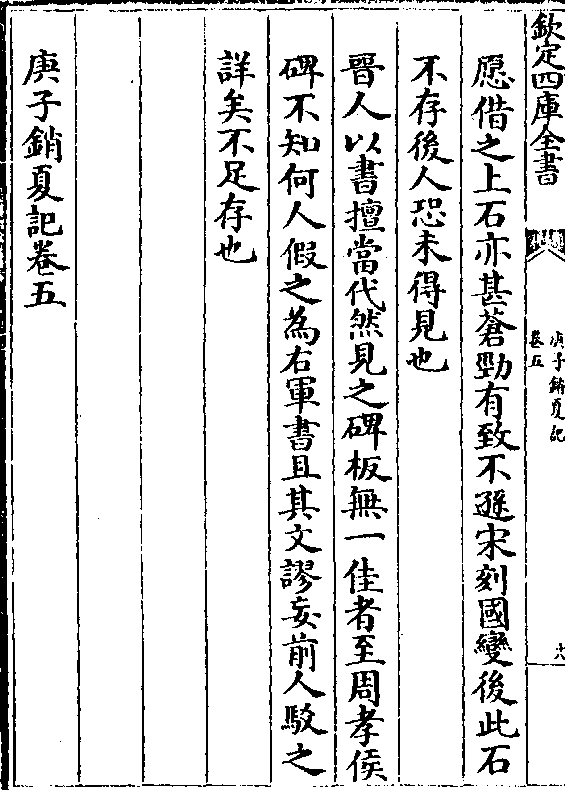 欽定四庫全書
庚子銷夏記
卷五
十八
愿借之上石亦甚蒼勁有致不遜宋刻國變後此石
不存後人恐未得見也
晉人以書擅當代然見之碑板無一佳者至周孝侯
碑不知何人假之為右軍書且其文謬妄前人駁之
詳矣不足存也
庚子銷夏記卷五